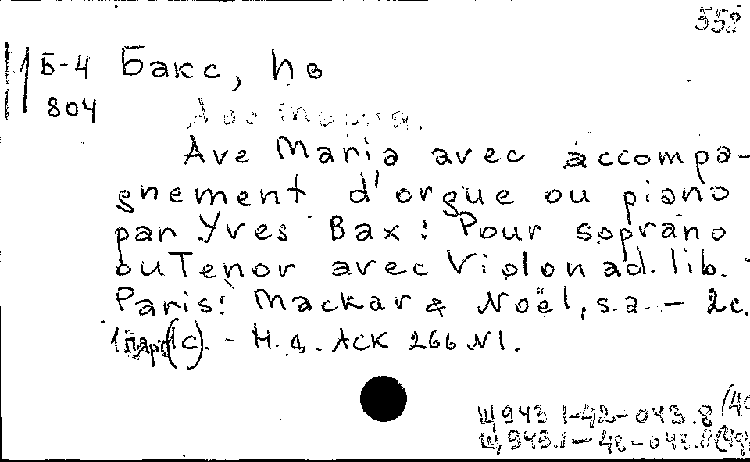 558
Б-4 Бакс, Ив
804
Аве Мария.
Ave Maria avec accompa-
gnement d'orgue ou piano
par Yves Bax: Pour soprano
ou Tenor avec Violon ad. lib. -
Paris: Mackar & Noël, s.a. - 2c.
1 парт (1с). - Н. д. АСК 266 N1.
Щ943.1-42-043.8